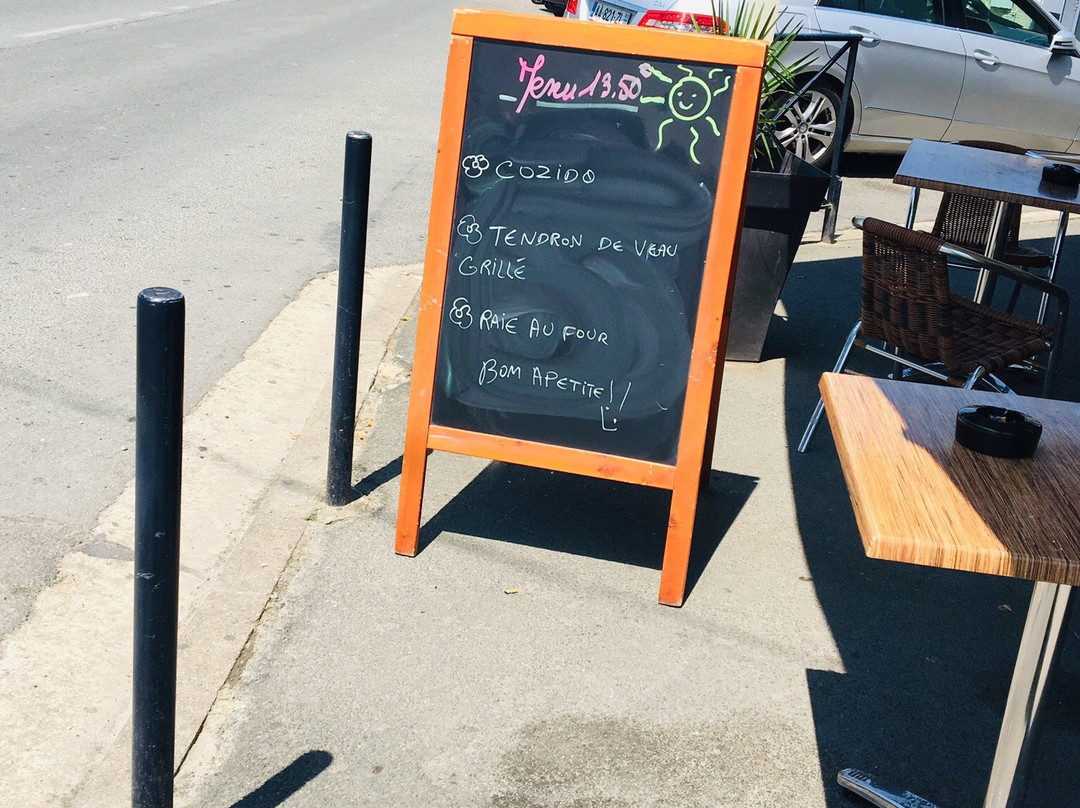 Menu 13.50
COZIDO
TENDRON DE VEAU
GRILLÉ
RAIE AU FOUR
BOM APETITE!!